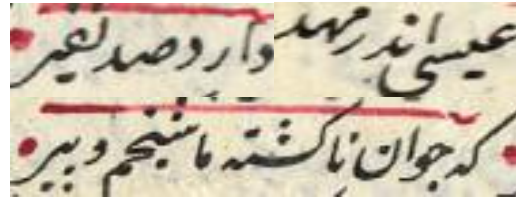 عیسی اندر مهد دارد صد نفیر
که جوان ناگشته ما شیخیم و پیر